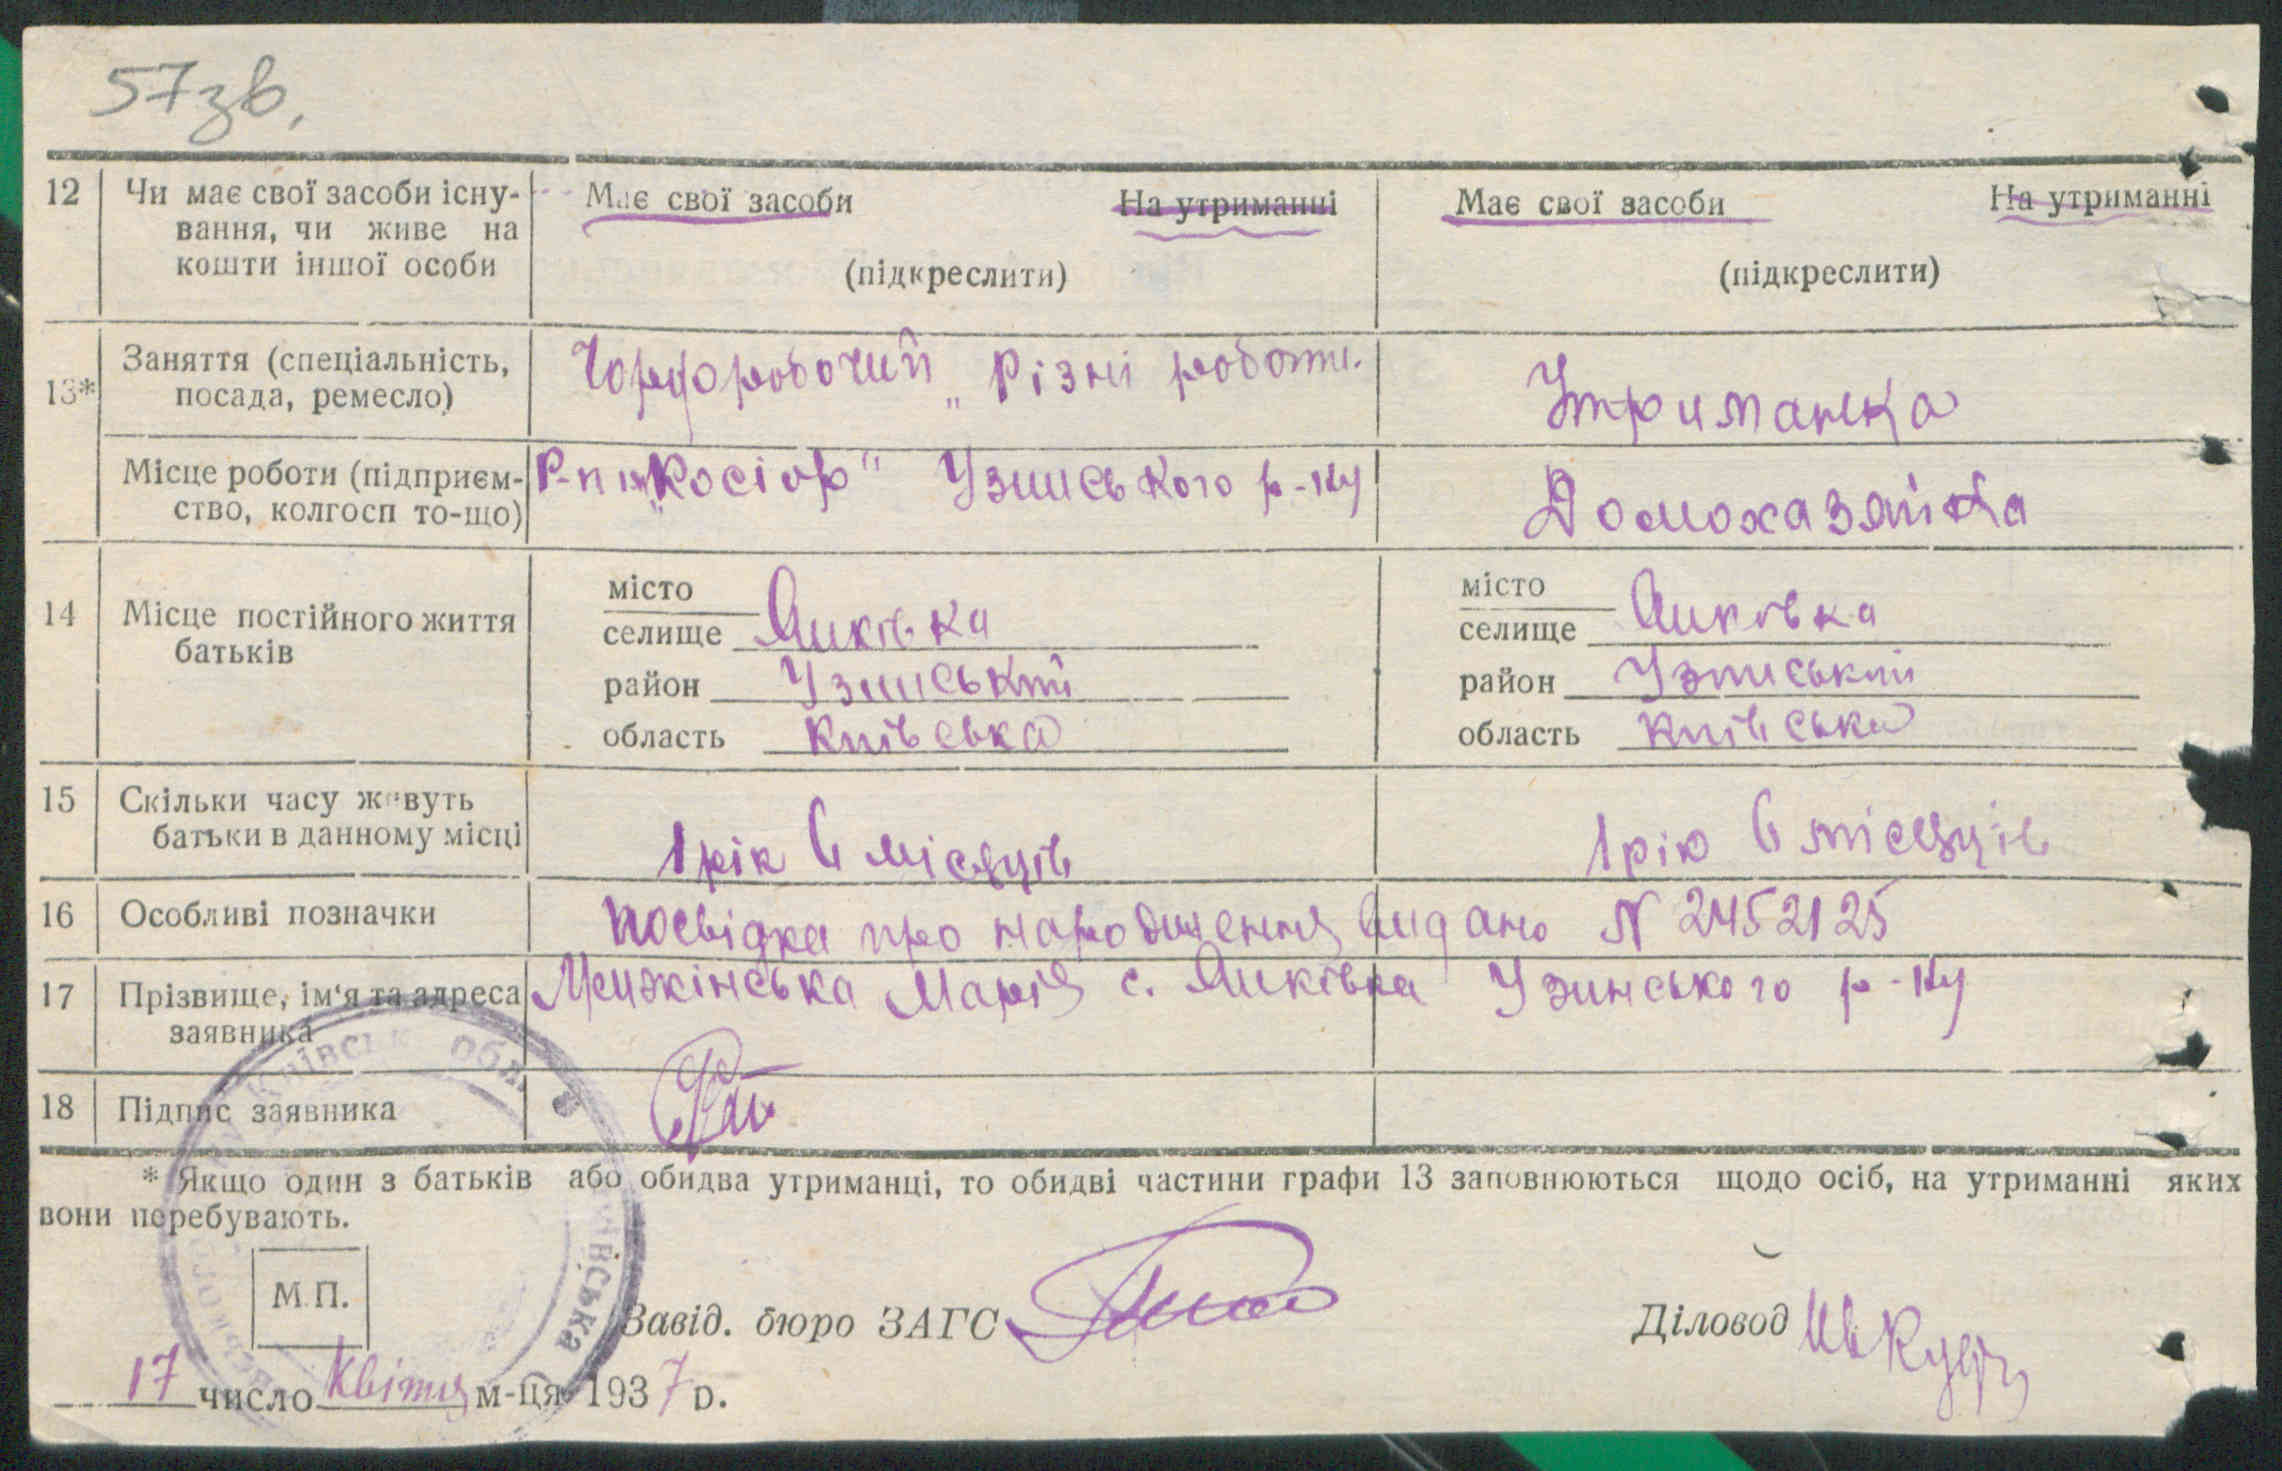 57зв.
12 Чи має свої засоби існу- Має свої засоби На утриманні Має свої засоби На утриманні
вання, чи живе на
кошти іншої особи (підкреслити) (підкреслити)
Заняття (спеціальність, Чорноробочий „Різні роботи.
13* посада, ремесло) Утриманка
Місце роботи (підприєм- „Косіор" Узинського р-ну
ство, колгосп то-що) Домохазяйка
місто місто
14 Місце постійного життя селище Янківка селище Янківка
батьків район Узинський район Узинський
область Київська область Київська
15 Скільки часу живуть
батьки в данному місці 1 рік 6 місяців 1 рік 6 місяців
16 Особливі позначки Посвідка про народження видано N 2452125
17 Прізвище, ім'я та адреса Марія с. Янківка Узинського р-ну
заявника
18 Підпис заявника
* Якщо один з батьків або обидва утриманці, то обидві частини графи 13 заповнюються щодо осіб, на утриманні яких
вони перебувають.
М.П.
Завід. бюро ЗАГС Діловод
17 число квітня м-ця 1937 р.
Київськ обл.